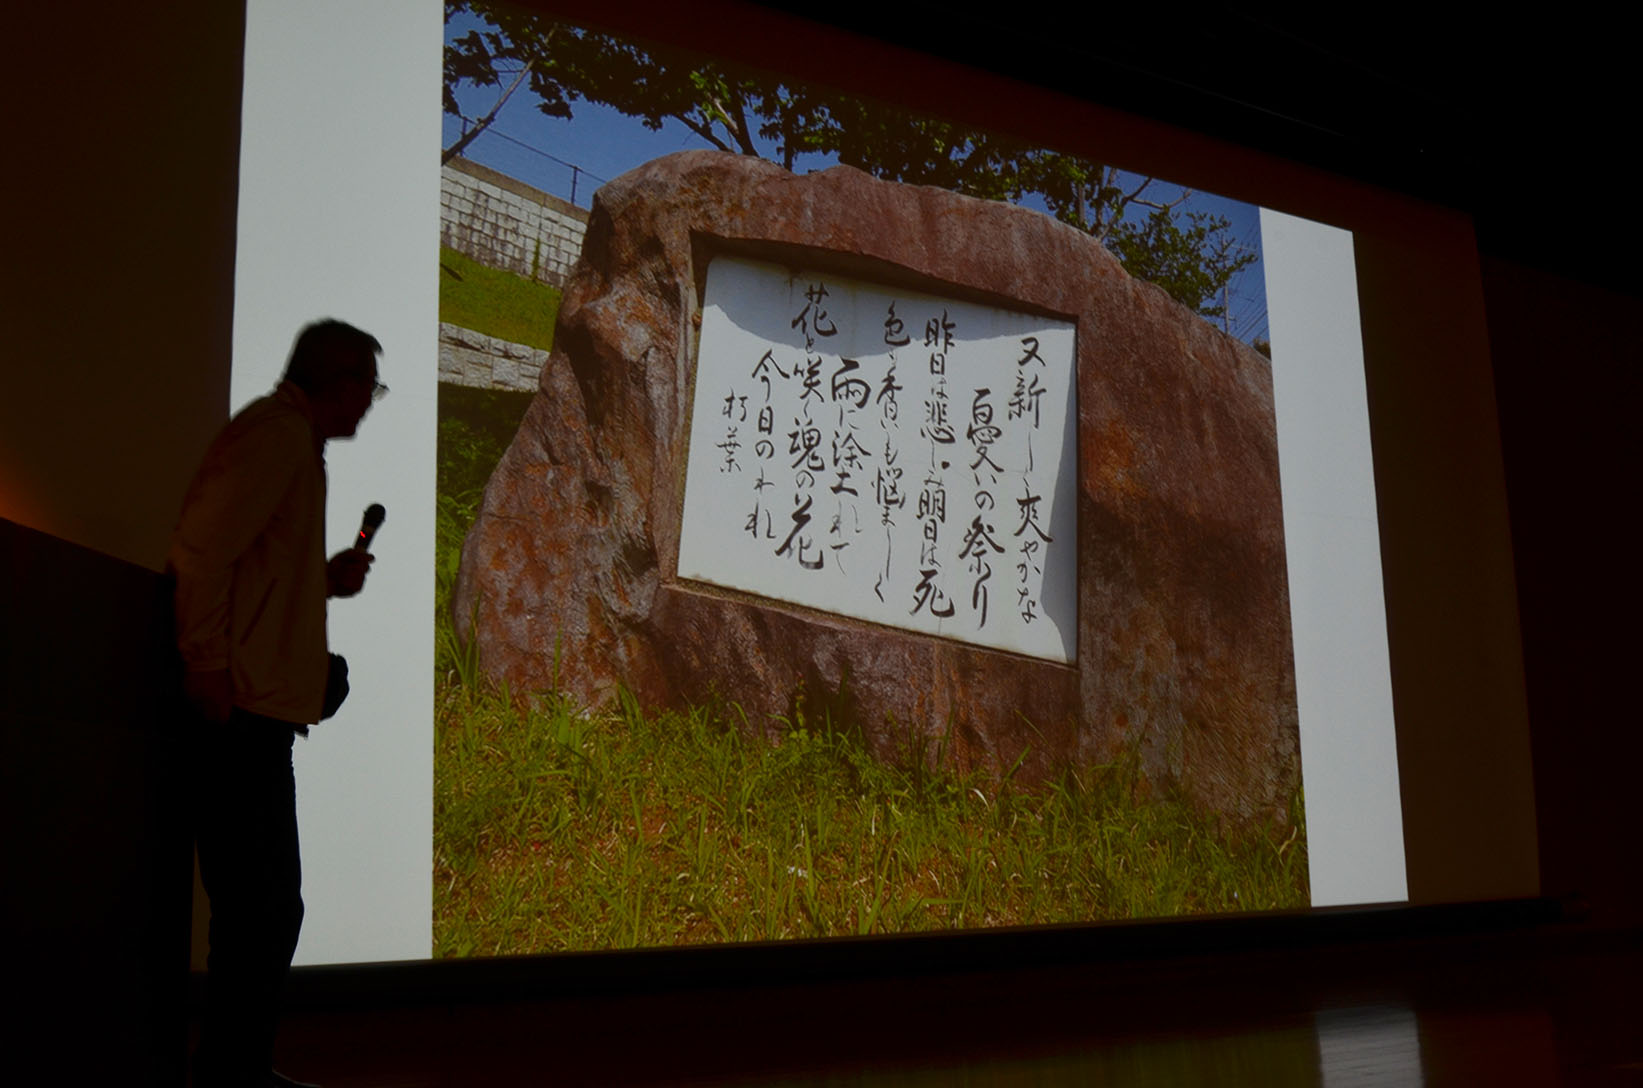 又新しく爽やかな
憂いの祭り
昨日は悲しみ明日は死
色も香いも悩ましく
雨に塗れて
花と咲く魂の花
今日のわれ
朽葉